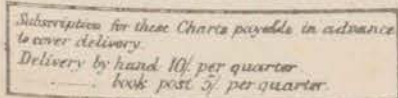 Subscription for these Charts payable in advance
to cover delivery.
Delivery by hand 10/ per quarter.
...... book post 5/ per quarter.